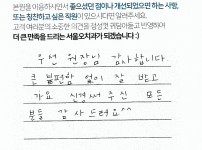 본원을 이용하시면서 좋으셨던 점이나 개선되었으면 하는 사항,
또는 칭찬하고 싶은 직원이 있으시다면 알려주세요.
고객 여러분의 소중한 의견을 정성껏 귀담아듣고 반영하여
더 큰 만족을 드리는 서울오치과가 되겠습니다 :)
우선 원장님 감사합니다
큰 불편함 없이 잘 받고
가요 신경써 주신 모든
분들 감사드려요^^